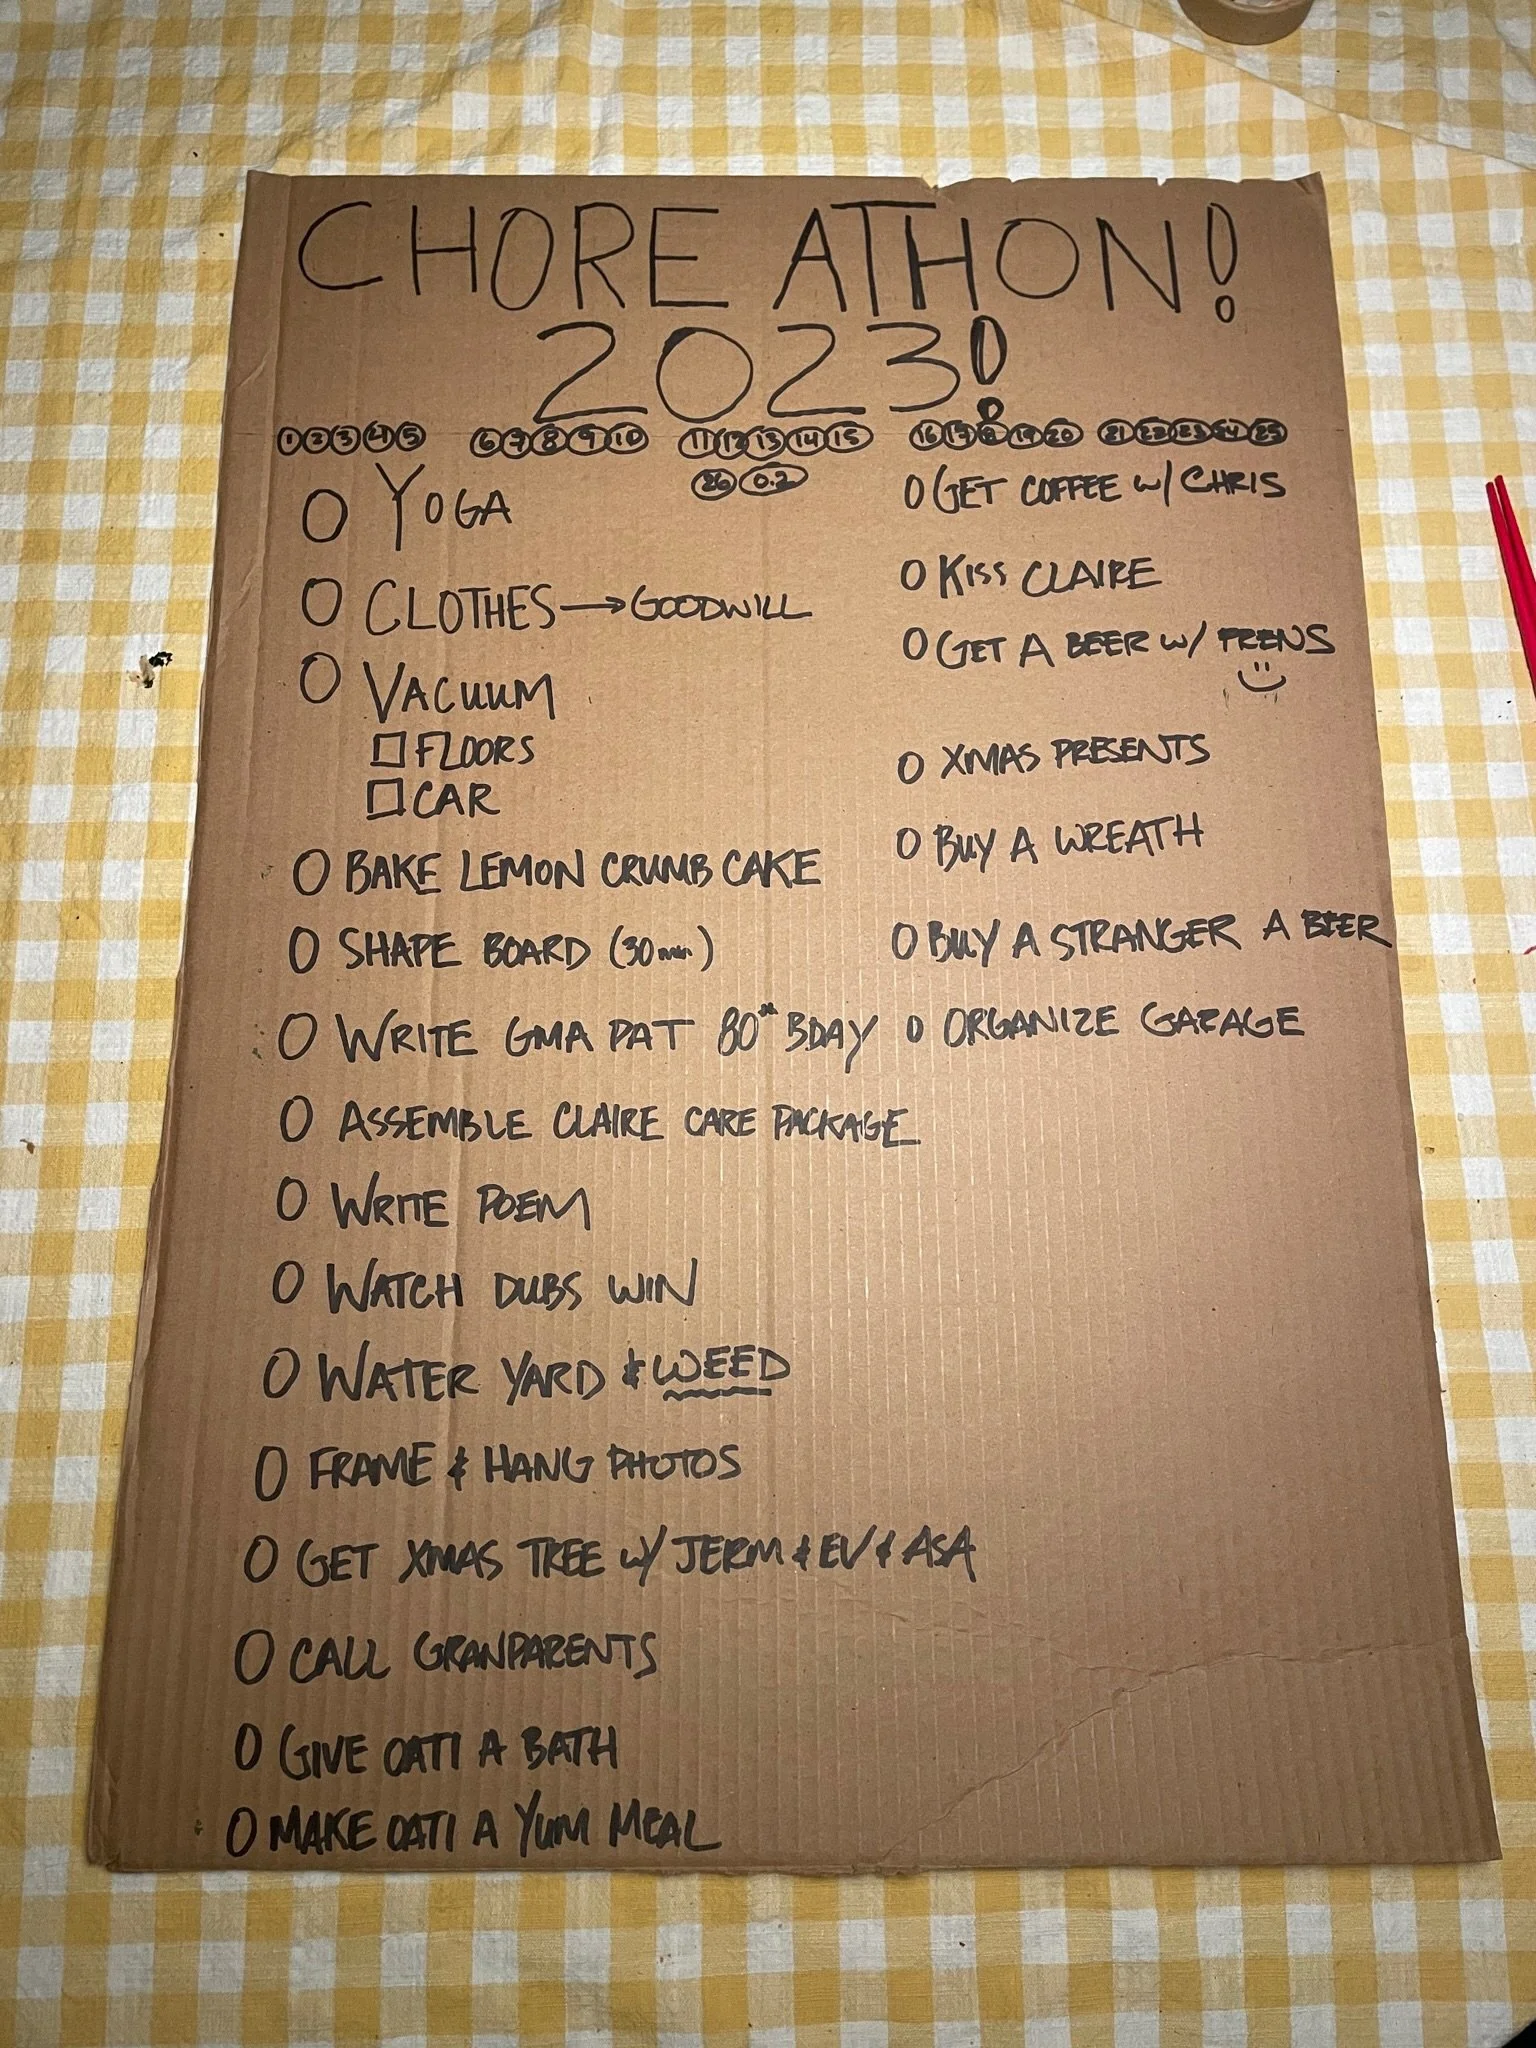 CHORE ATHON!
2023!
1 2 3 4 5 6 7 8 9 10 11 12 13 14 15 16 17 18 19 20 21 22 23 24 25
26 0.2
O YOGA
O CLOTHES → GOODWILL
O VACUUM
□ FLOORS
□ CAR
O BAKE LEMON CRUMB CAKE
O SHAPE BOARD (30 min)
O WRITE GMA PAT 80TH BDAY
O ASSEMBLE CLAIRE CARE PACKAGE
O WRITE POEM
O WATCH DUBS WIN
O WATER YARD & WEED
O FRAME & HANG PHOTOS
O GET XMAS TREE W/ JERM & EV & ASA
O CALL GRANPARENTS
O GIVE OATI A BATH
O MAKE OATI A YUM MEAL
O GET COFFEE W/ CHRIS
O KISS CLAIRE
O GET A BEER W/ FRENS
O XMAS PRESENTS
O BUY A WREATH
O BUY A STRANGER A BEER
O ORGANIZE GARAGE